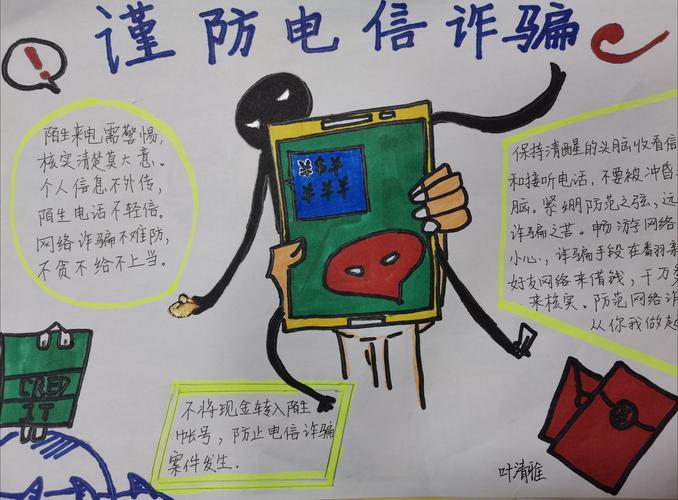 谨防电信诈骗
陌生来电需警惕,
核实清楚莫大意。
个人信息不外传,
陌生电话不轻信。
网络诈骗不难防,
不贪不给不上当。
保持清醒的头脑收看信
和接听电话,不要被冲昏
脑。紧绷防范之弦,远
诈骗之苦。畅游网络
小心,诈骗手段在翻新
好友网络来借钱,千万
来核实。防范网络诈
从你我做起
不将现金转入陌生
帐号,防止电信诈骗
案件发生.
CRED
IT
叶清雅